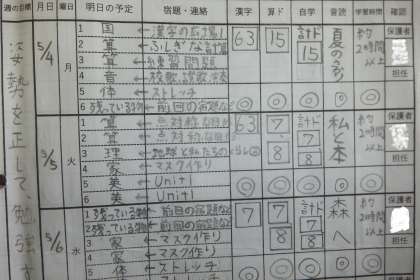 週の目標 月日 曜日 明日の予定 宿題・連絡 漢字 算ド 自学 音読 学習時間 確認
姿勢を正して、勉強す
5/4 月
1 国 ← 漢字の広場1
2 算 ← ふしぎな
3 算 ← 練習問題
4 音 ← 校歌
5 体 ← ストレッチ
6 残っている物 ← 前回の宿題など
63 15 計ド 15 夏の 約2時間以上 保護者 担任
5/5 火
1 算 ← 点対称な図形
2 算 ← 点対称な図形
3 理 ← 地球と私たちのくらし
4 家 ← マスク作り
5 英 ← Unit1
6 英 ← Unit1
63 7、8 計ド 7 8 私と本 約2時間以上 保護者 担任
5/6 水
1 残っている物 ← 前回の宿題など
2 残っている物 ← 前回の宿題など
3 家 ← マスク作り
4 家 ← マスク作り
5 体 ← ストレッチ
7 7、8 計ド 7 8 森へ 約2時間以上 保護者 担任